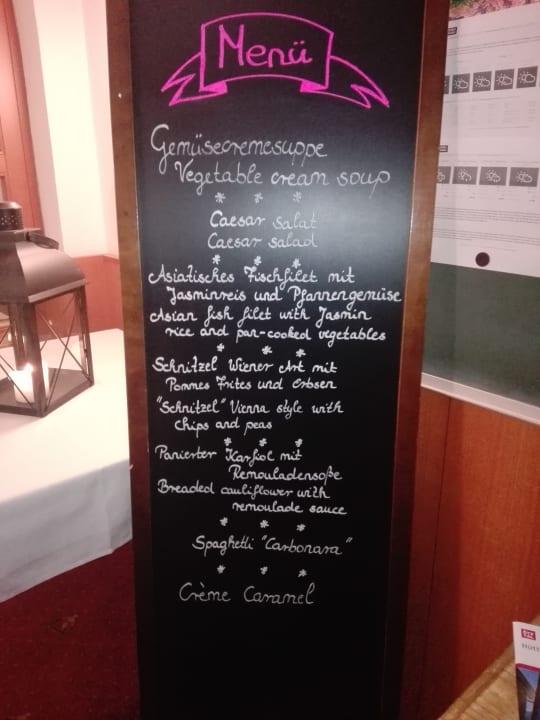 Menü
Gemüsecremesuppe
Vegetable cream soup
* * *
Caesar Salat
Caesar salad
* * *
Asiatisches Fischfilet mit
Jasminreis und Pfannengemüse
Asian fish filet with Jasmin
rice and pan-cooked vegetables
* * *
Schnitzel Wiener Art mit
Pommes Frites und Erbsen
"Schnitzel" Vienna style with
chips and peas
* * *
Panierter Karfiol mit
Remouladensoße
Breaded cauliflower with
remoulade sauce
* * *
Spaghetti "Carbonara"
* * *
Crème Caramel